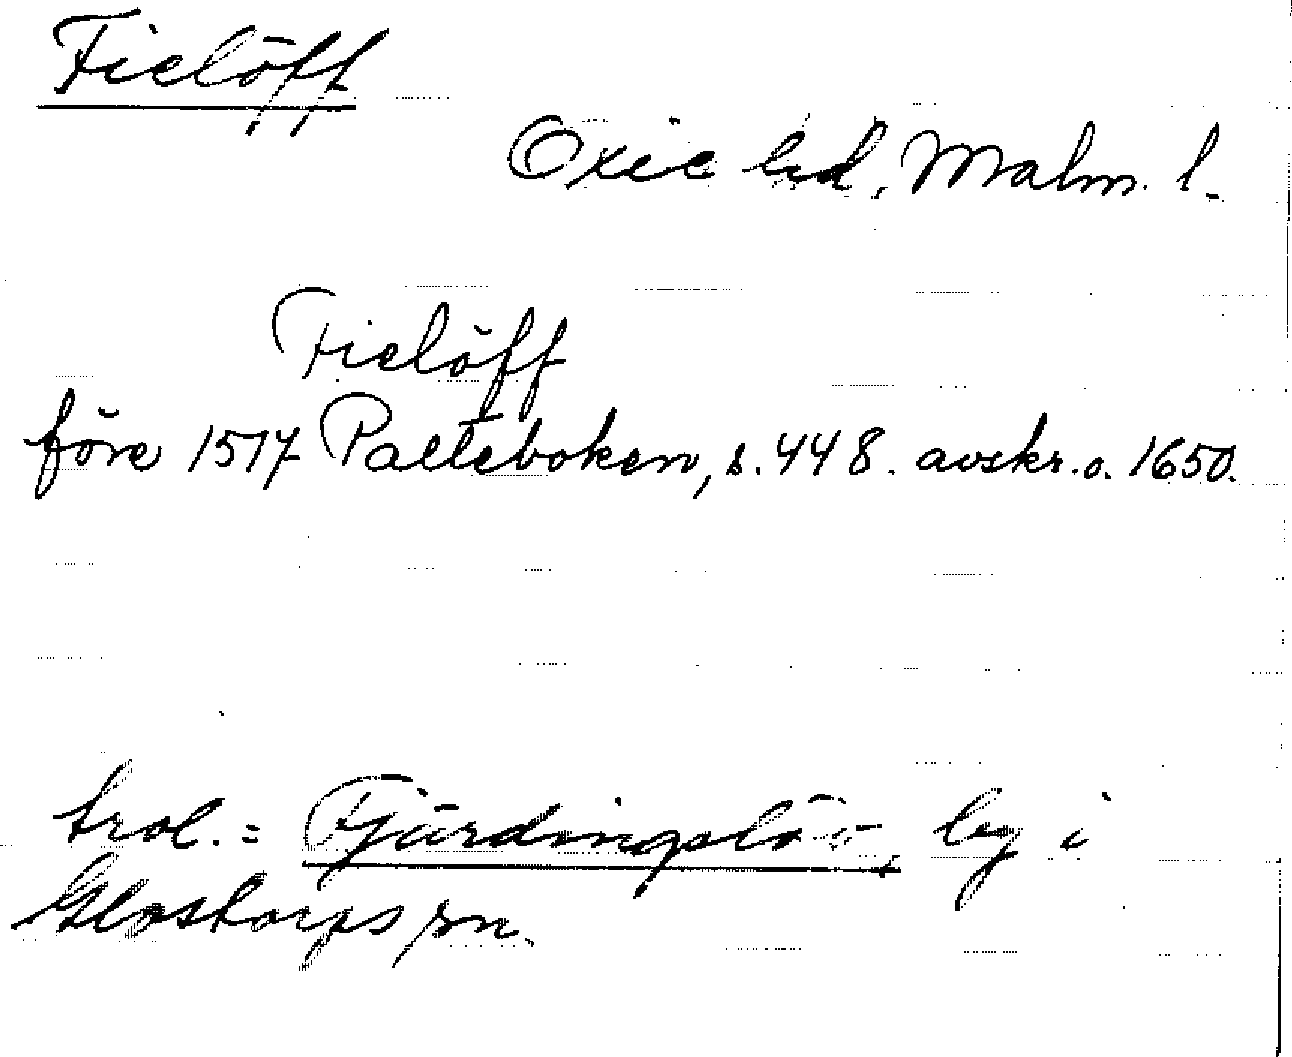 Fielöff
Oxie hd, Malm. l.
Fielöff
före 1517 Palteboken, s. 448. avskr. o. 1650.
trol. = Fjärdingslöv, by i
Glostorps sn.